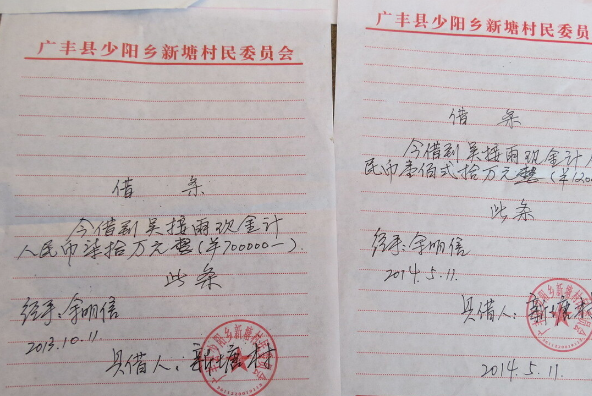 广丰县少阳乡新塘村民委员会
借 条
今借到吴接雨现金计
人民币柒拾万元整(￥700000—)
此条
经手:余明信
2013.10.11.
具借人:新塘村
广丰县少阳乡新塘村民委员
借 条
今借到吴接雨现金计人
民币壹佰贰拾万元整(￥120
此条
经手:余明信
2014.5.11.
具借人:新塘村
2014.5.11.